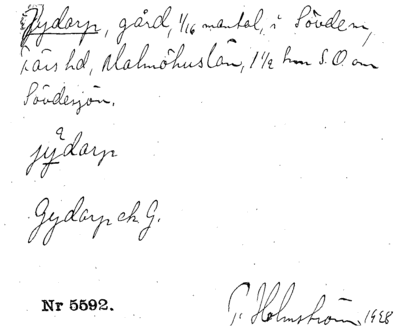 Gydarp, gård, 1/16 mantal, i Sövden,
Färs hd, Malmöhus län, 1 1/2 km S.O. om
Sövdesjön.
jẙdarp
Gydarp ek G.
Nr 5592.
T. Holmström 1928